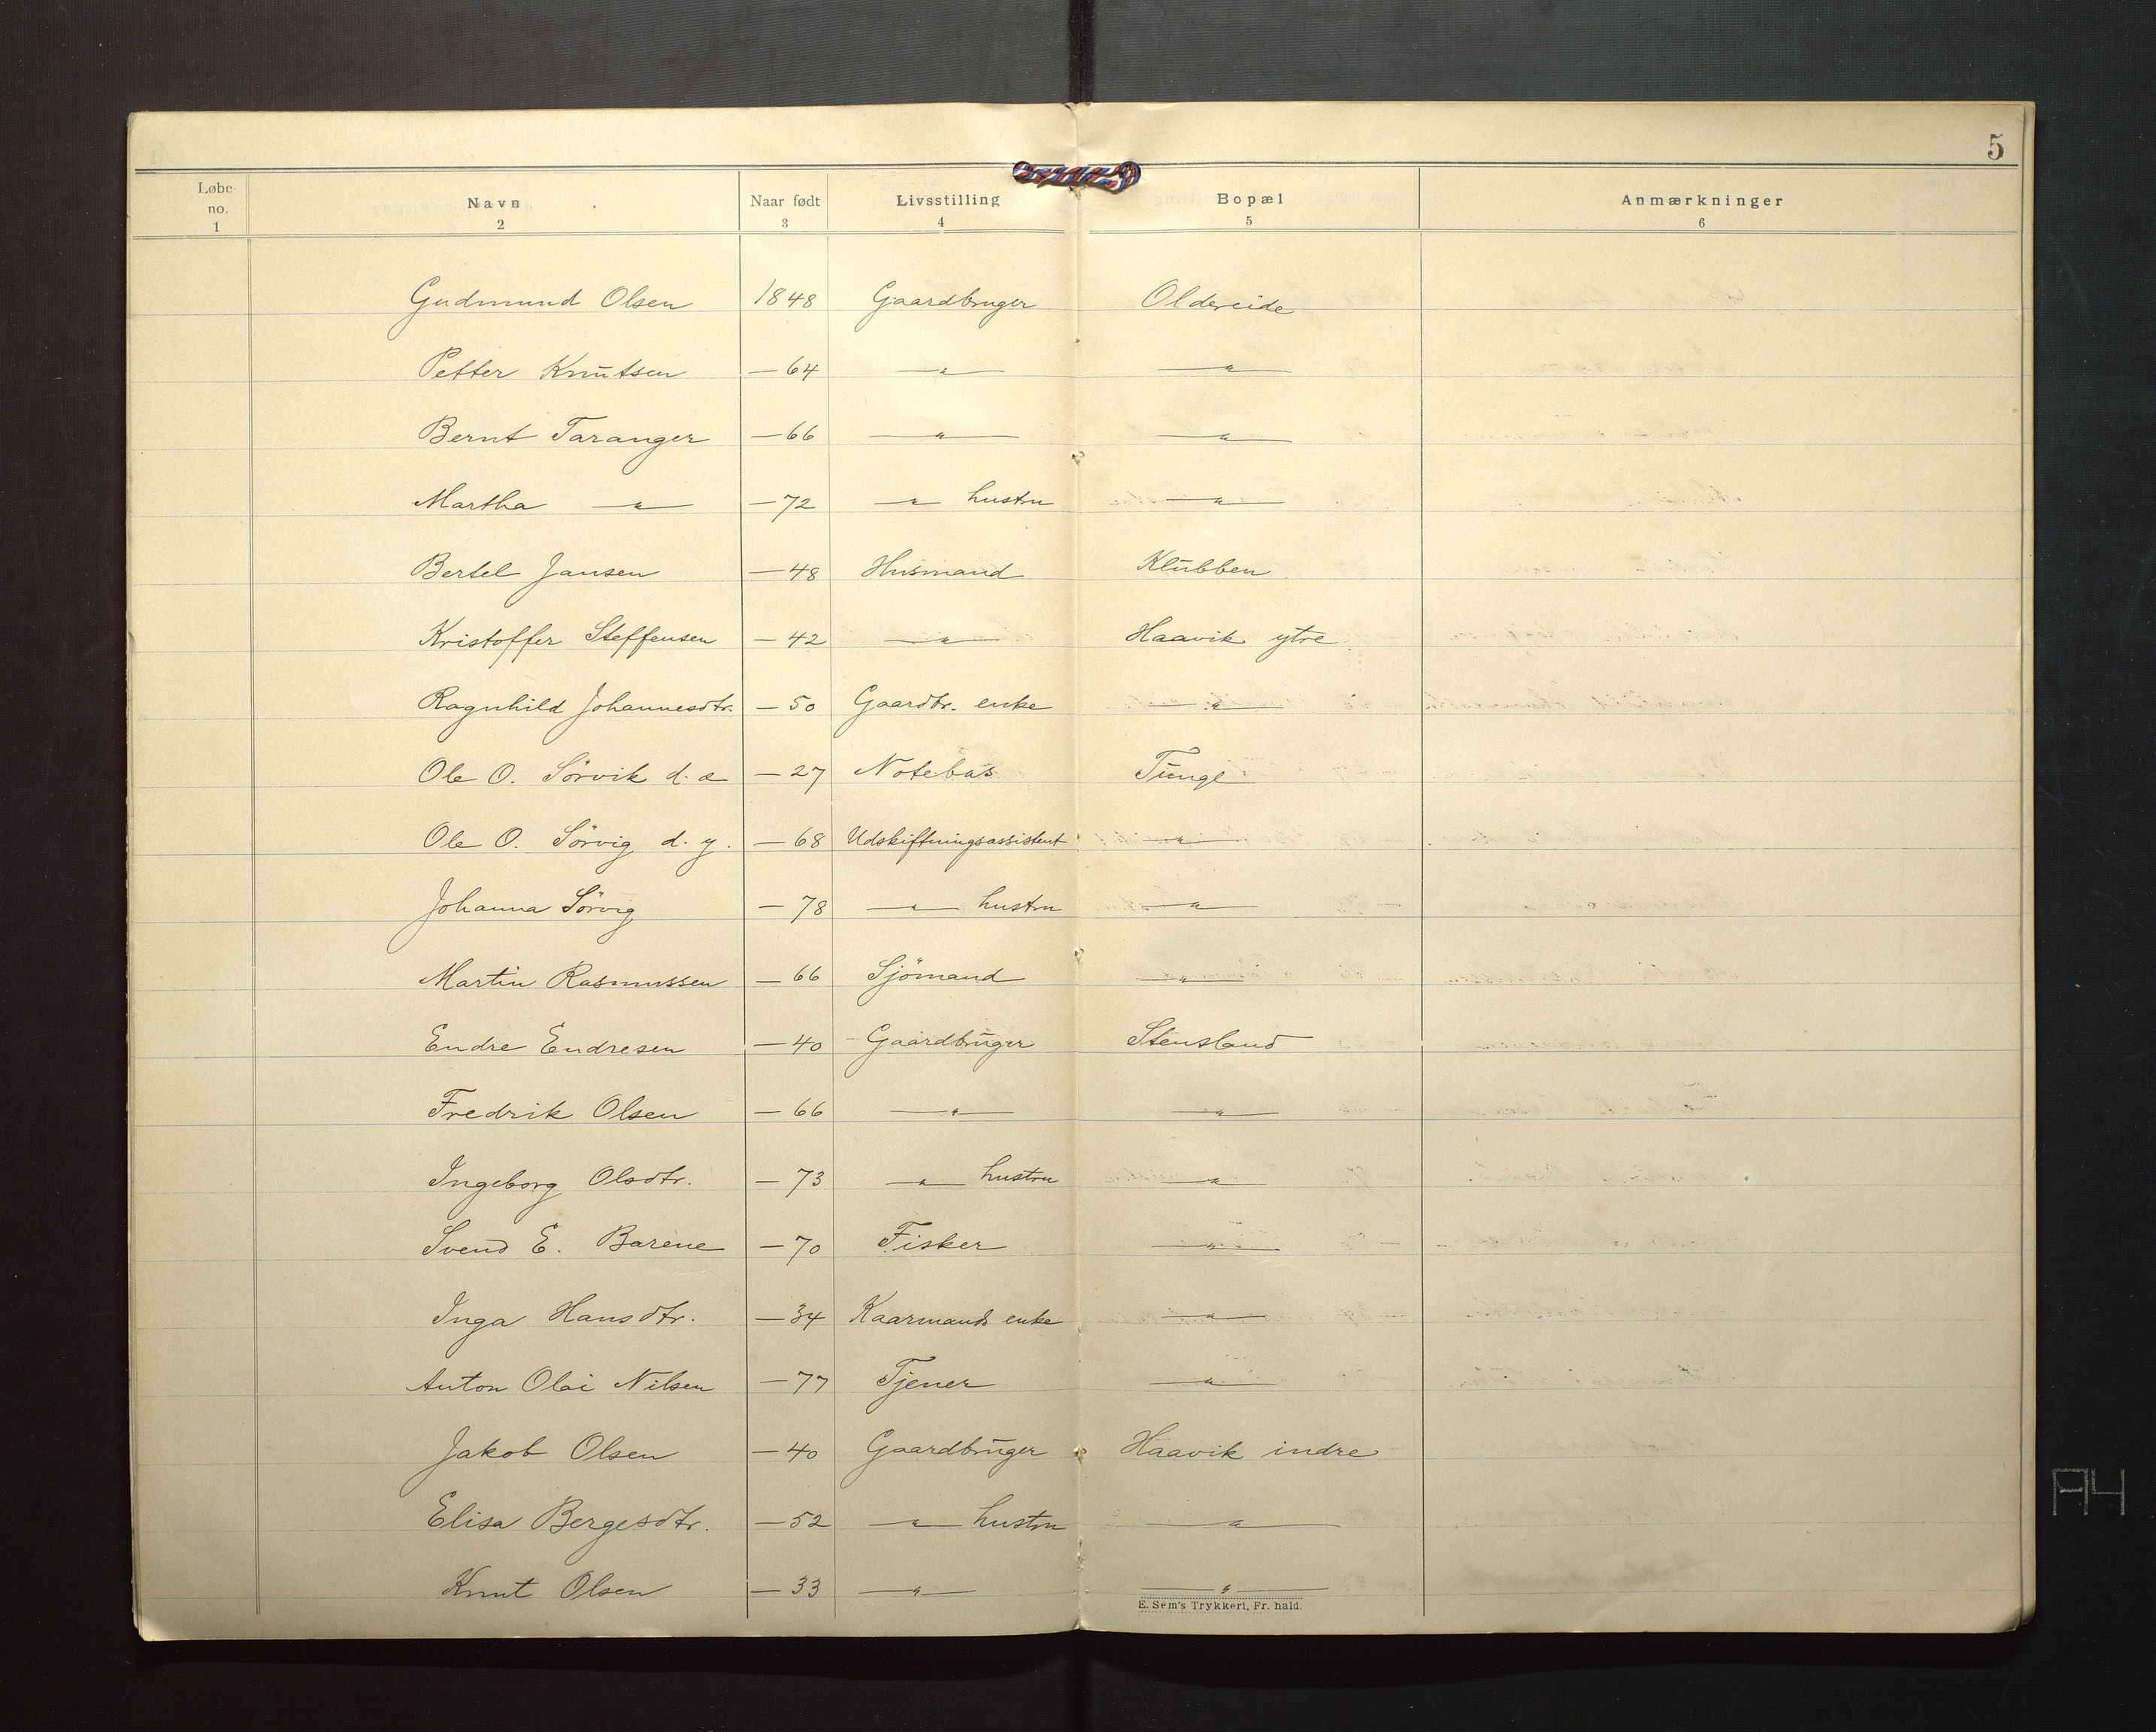 5
Løbe no. Navn Naar født Livsstilling Bopæl Anmærkninger
1 2 3 4 5 6
Gudmund Olsen 1848 Gaardbruger Oldereide
Petter Knutsen — 64 —"— —"—
Bernt Taranger — 66 —"— —"—
Martha —"— — 72 —"— hustru —"—
Bertel Jansen — 48 Husmand Klubben
Kristoffer Steffensen — 42 —"— Haavik ytre
Ragnhild Johannesdtr. — 50 Gaardbr. enke —"—
Ole O. Sörvik d. æ — 27 Notebas Tunge
Ole O. Sörvig d. y. — 68 Udskiftningsassistent —"—
Johanna Sörvig — 78 —"— hustru —"—
Martin Rasmussen — 66 Sjömand —"—
Endre Endresen — 40 Gaardbruger Stensland
Fredrik Olsen — 66 —"— —"—
Ingeborg Olsdtr. — 73 —"— hustru —"—
Svend E. Barene — 70 Fisker —"—
Inga Hansdtr. — 34 Kaarmands enke —"—
Anton Olai Nilsen — 77 Tjener —"—
Jakob Olsen — 40 Gaardbruger Haavik indre
Elisa Bergesdtr. — 52 —"— hustru —"—
Knut Olsen — 33 —"— —"—
E. Sem's Trykkeri, Fr. hald.
A4